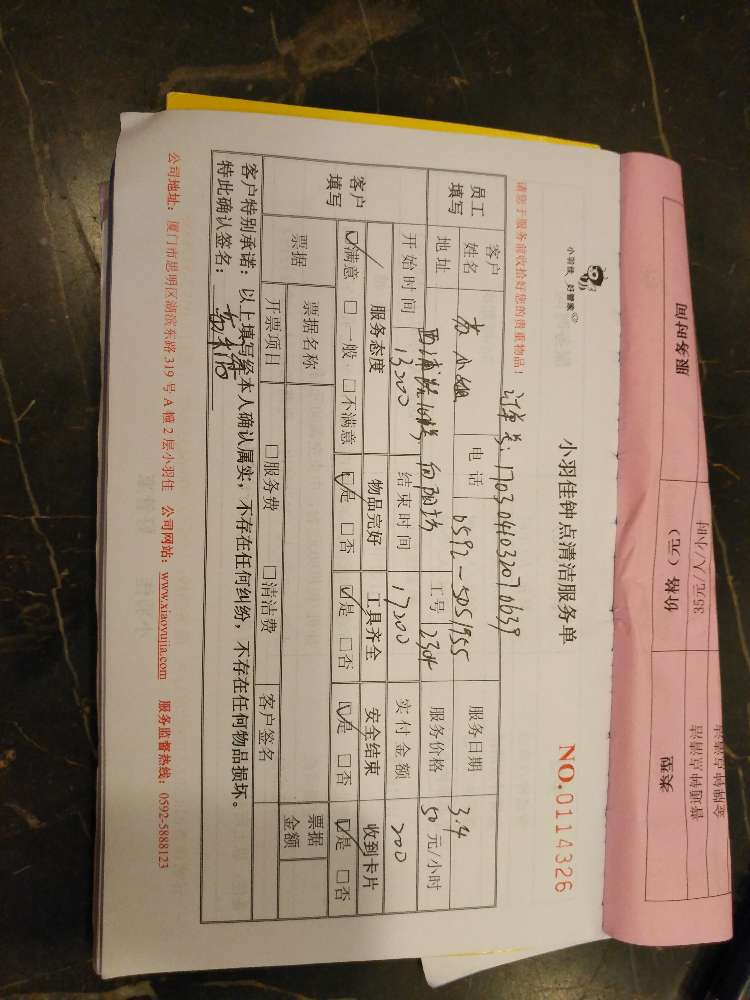 小羽佳 好管家
小羽佳钟点清洁服务单
NO.0114326
请您于服务前收拾好您的贵重物品！
订单号：1703041032070639
员工填写
客户姓名 黄小姐 电话 0592-5051955 服务日期 3.4
地址 工号 2304 服务价格 50 元/小时
开始时间 13200 结束时间 17200 实付金额 200
客户填写
服务态度 物品完好 工具齐全 安全结束 收到卡片
☑满意 □一般 □不满意 ☑是 □否 ☑是 □否 ☑是 □否 ☑是 □否
票据
票据名称 票据金额
开票项目 □服务费 □清洁费 客户签名
客户特别承诺：以上填写经本人确认属实，不存在任何纠纷，不存在任何物品损坏。
特此确认签名：
公司地址：厦门市思明区湖滨东路 319 号 A 幢 2 层小羽佳 公司网站：www.xiaoyujia.com 服务监督热线：0592-5888123
服务时间
价格（元）
35元/人/小时
类型